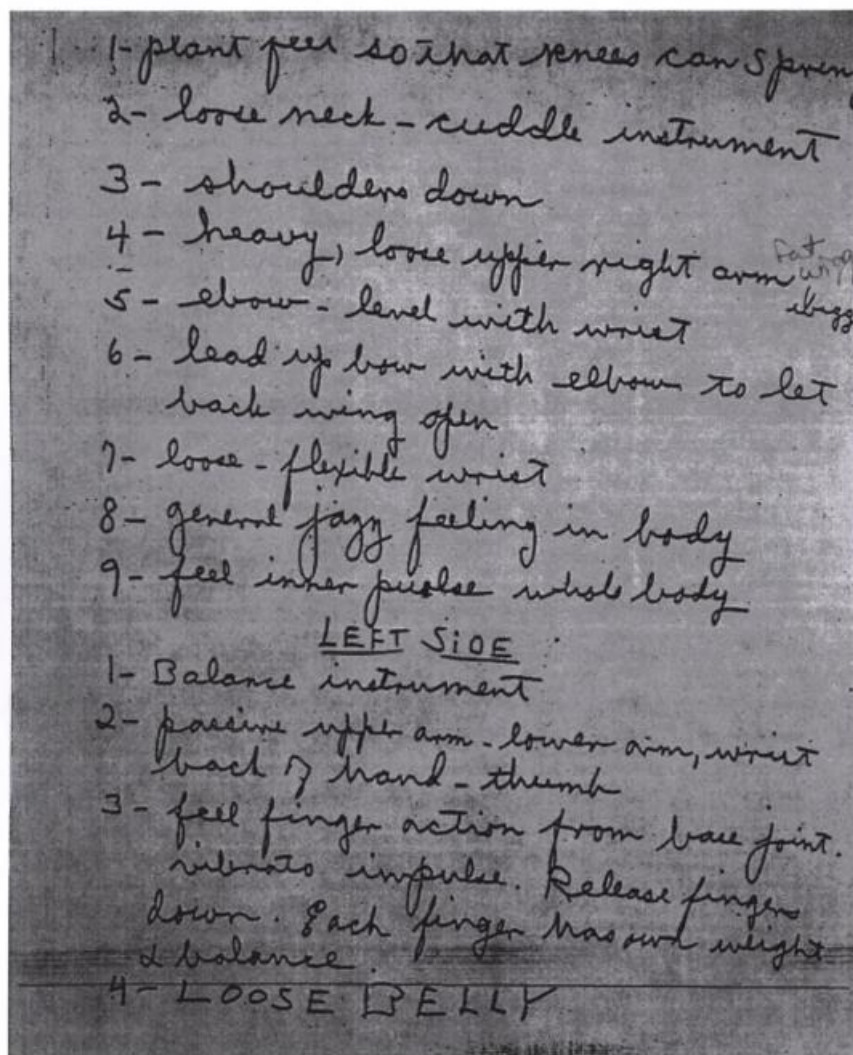 1- plant feet so that knees can spring
2- loose neck - cuddle instrument
3- shoulders down
4- heavy, loose upper right arm
5- ebow - level with wrist
6- lead up bow with elbow to let
back wing open
7- loose - flexible wrist
8- general jazz feeling in body
9- feel inner puolse whole body
LEFT SiDE
1- Balance instrument
2- passive upper arm - lower arm, wrist
back of hand - thumb
3- feel finger action from base joint.
vibrato impulse. Release fingers
down. Each finger has own weight
& balance.
4- LOOSE BELLY